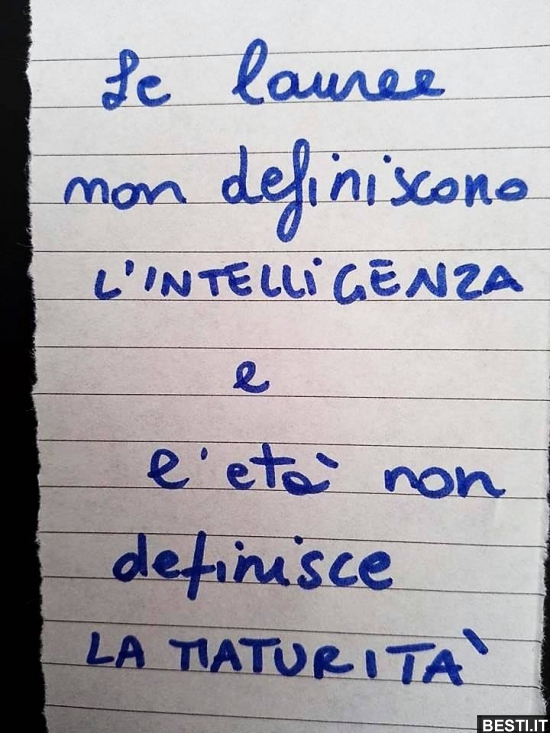 Le lauree
non definiscono
L'INTELLIGENZA
e
l'età non
definisce
LA MATURITÀ
BESTI.IT